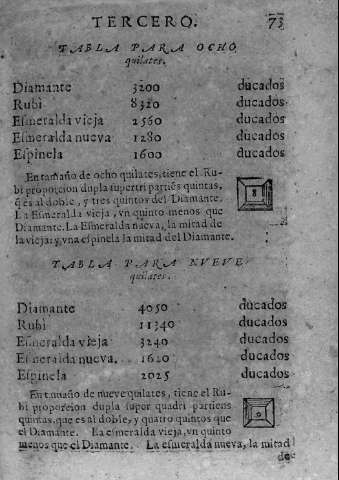 TERCERO. 73
TABLA PARA OCHO
quilates.
Diamante 3200 ducados
Rubi 8320 ducados
Esmeralda vieja 2560 ducados
Esmeralda nueva 1280 ducados
Espinela 1600 ducados
En tamaño de ocho quilates, tiene el Ru-
bi proporcion dupla supertri partiẽs quintas,
q̃ es al doble, y tres quintos del Diamante.
La Esmeralda vieja, vn quinto menos que
Diamante. La Esmeralda nueva, la mitad de
la vieja: y vna espinela la mitad del Diamante.
8
TABLA PARA NVEVE
quilates.
Diamante 4050 ducados
Rubi 11340 ducados
Esmeralda vieja 3240 ducados
Esmeralda nueva. 1620 ducados
Espinela 2025 ducados
En tamaño de nueve quilates, tiene el Ru-
bi proporcion dupla super quadri partiens
quintas, que es al doble, y quatro quintos que
el Diamante. La esmeralda vieja, vn quinto
menos que el Diamante. La esmeralda nueva, la mitad
de